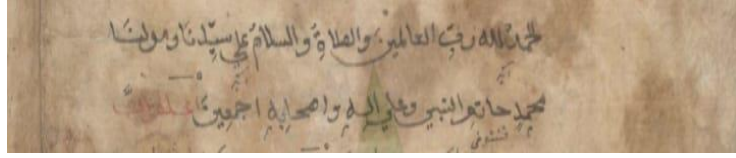 الحمد لله رب العالمين والصلاة والسلام على سيدنا ومولنا
محمد خاتم النبي وعلى اله واصحابه اجمعين